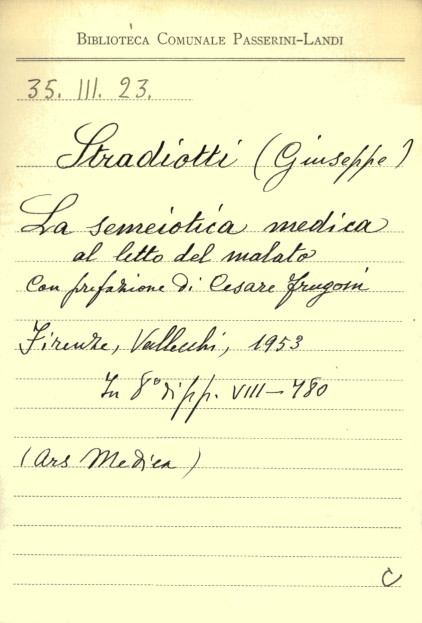 BIBLIOTECA COMUNALE PASSERINI-LANDI
35. III. 23.
Stradiotti (Giuseppe)
La semeiotica medica
al letto del malato
Con prefazione di Cesare Frugoni
Firenze, Vallecchi, 1953
In 8° di pp. VIII-780
(Ars Medica)
C